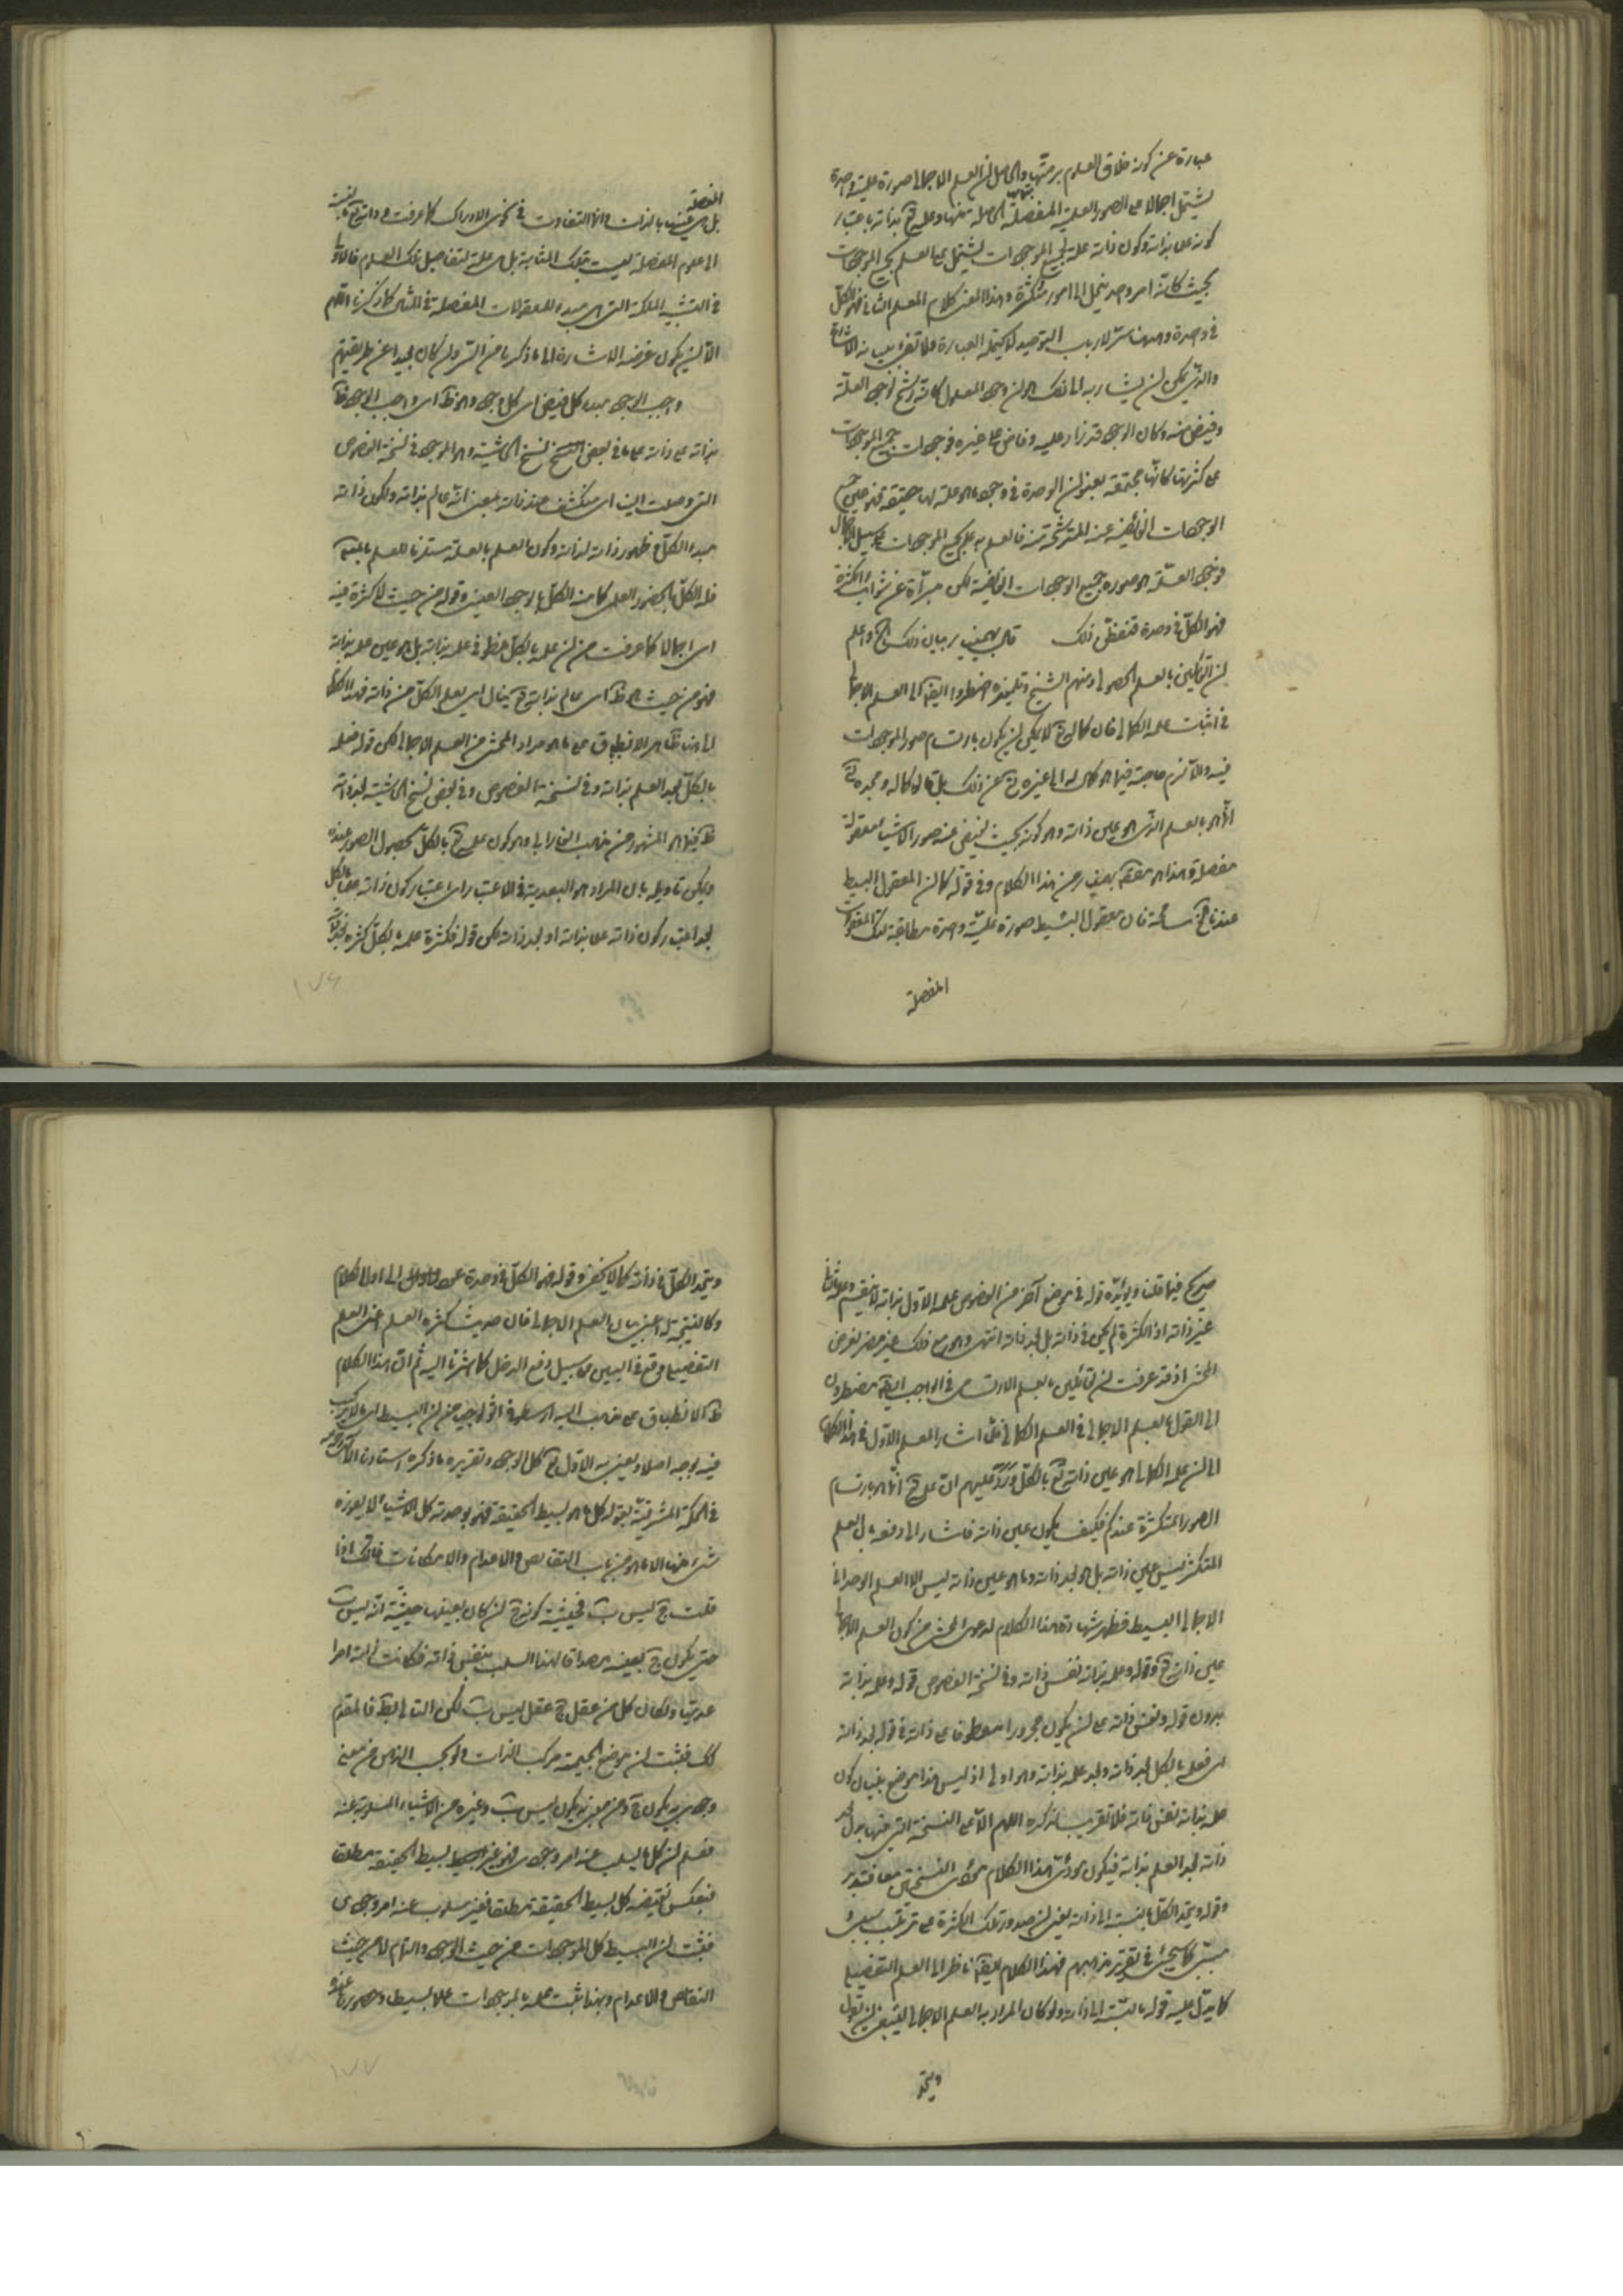 عبارة عن كونه خلاق العلوم برمتها والحاصل ان العلم الاجمالى صورة علمية واحدة
يشتمل اجمالا على الصور العلمية المفصلة الحاصلة عنها وعلمه تع بذاته باعتبار
كونه علما بذاته وكون ذاته علة لجميع الموجودات يشتمل على العلم بجميع الموجودات
بحيث كانه امر واحد ينحل الى امور متكثرة وهذا المعنى كلام المعلم الثانى فهو الكل
فى وحدة وههنا سر لارباب التوحيد لا يحتمله العبارة ولا تفى به الاشارة
والذى يمكن ان يشار به الى ذلك هو ان وجود المعلول كانه رشح لوجود العلة
وفيض منه وكان الوجود قد زاد عليه وفاض على غيره فوجودات جميع الموجودات
على كثرتها كانها مجتمعة بعنوان الوحدة فى وجود ما هو علة لها حقيقة فهو عين جميع
الوجودات الفائضة عنه المترشحة منه فالعلم به علم بجميع الموجودات على سبيل الاجمال
فوجود العلة هو صورة جميع الوجودات الفائضة لكن مبرأة عن شوائب الكثرة
فهو الكل فى وحدة فتفطن ذلك قال بهمنيار بيان ذلك الخ واعلم
ان القائلين بالعلم الحصولى ومنهم الشيخ وتلميذه اضطروا ايضا الى العلم الاجمالى
فى اثبات علمه الكمالى فان كماله تع لا يمكن ان يكون بارتسام صور الموجودات
فيه والا لزم حاجته فيما هو كمال له الى غيره تع عن ذلك بل كماله ومجده تع
انما هو بالعلم الذى هو عين ذاته وهو كونه بحيث يفيض عنه صور الاشياء معقولة
مفصلة وهذا هو مقصود بهمنيار من هذا الكلام وفى قوله كما ان المعقول البسيط
عندنا مسامحة فان معقول البسيط صورة علمية واحدة مطابقة لتلك المعقولات
المفصلة
المفصلة
بل هى عينها بالذات وانما التفاوت فى نحوى الادراك كما عرفت وذاته تع بالنسبة
الى علوم المفصلة ليست بتلك المثابة بل هى علة لتفاصيل تلك العلوم فالاولى
فى التشبيه الملكة التى هى مبدء للمعقولات المفصلة فى المثال كما ذكرنا اللهم
الا ان يكون غرضه الاشارة الى ما ذكرنا من السر وان كان بعيدا عن طريقتهم
واجب الوجود مبدء كل فيض اى كل وجود وهو ظاهر اى واجب الوجود ظاهر
بذاته على ذاته على ما فى بعض النسخ نسخ الحاشية وهو الموجود فى نسخة الفصوص
التى وصلت الينا اى منكشف عند ذاته بمعنى انه عالم بذاته ولكون ذاته
مبدء الكل وظهور ذاته لذاته وكون العلم بالعلة مستلزما للعلم بالمعلول
فله الكل بالحضور العلمى كما منه الكل بالوجود العينى وقوله من حيث لا كثرة فيه
اى اجمالا كما عرفت من ان علمه بالكل منطو فى علمه بذاته بل هو عين علمه بذاته
فهو من حيث هو ظاهر اى عالم بذاته تع ينال اى يعلم الكل من ذاته فهذا الكلام
الى هنا ظاهر الانطباق على ما هو مراد المحشى من العلم الاجمالى لكن قوله فعلمه
بالكل بعد العلم بذاته وفى نسخة الفصوص وفى بعض نسخ الحاشية بعد ذاته
ظاهر فيما هو المشهور من مذهب الفارابى وهو كون علمه تع بالكل بحصول الصور عنده
ويمكن تاويله بان المراد هو البعدية فى الاعتبار اى اعتبار كون ذاته علما بالكل
بعد اعتبار كون ذاته علما بذاته او بعد ذاته لكن قوله فكثرة علمه بالكل كثرة بعد ذاته
١٧٦
صريح فيما قلنا ويؤيده قوله فى موضع آخر من الفصوص علمه الاول بذاته لا ينقسم وعلمه الثانى
عن ذاته اذا تكثر لم يكن فى ذاته بل بعد ذاته انتهى وهو مع ذلك غير مضر لغرض
المحشى اذ قد عرفت ان القائلين بالعلم الارتسامى فى الواجب ايضا مضطرون
الى القول بالعلم الاجمالى فى العلم الكمالى فلما اشار المعلم الاول فى هذا الكلام
الى ان علمه الكمالى هو عين ذاته تع بالكل ورد عليهم ان علمه تع انما هو بارتسام
الصور المتكثرة عندكم فكيف يكون عين ذاته فاشار الى دفعه بان العلم
المتكثر ليس عين ذاته بل هو بعد ذاته وما هو عين ذاته ليس الا العلم الوحدانى
الاجمالى البسيط فظهر شهادة هذا الكلام لدعوى المحشى من كون العلم الاجمالى
عين ذاته تع وقوله وعلمه بذاته نفس ذاته وفى نسخة الفصوص قوله وعلمه بذاته
بدون قوله ونفس ذاته على ان يكون مجرورا معطوفا على ذاته فى قوله بعد ذاته
اى فعلمه بالكل بعد ذاته وبعد علمه بذاته وهو اولى اذ ليس هذا موضع بيان كون
علمه بذاته نفس ذاته فلا تقريب لذكره اللهم الا على النسخة التى فيها بدل بعد
ذاته بعد العلم بذاته فيكون مؤدى هذا الكلام مؤدى النسختين معا فتدبر
وقوله ويتحد الكل بالنسبة الى ذاته يعنى ان صدور تلك الكثرة على ترتيب سببى و
مسببى كما سيجئ فى تقرير مذهبهم فهذا الكلام ايضا ناظر الى العلم التفصيلى
كما يدل عليه قوله بالنسبة الى ذاته ولو كان المراد به العلم الاجمالى لينبغى ان يقول
ويتحد
ويتحد الكل فى ذاته كما لا يخفى وقوله فهو الكل فى وحدة اى اول الكلام
وكالنتيجة له اعنى بيان العلم الاجمالى فان حديث كثرة العلم اعنى العلم
التفصيلى وقع فى البين على سبيل دفع الدخل كما اشرنا اليه ثم ان هذا الكلام
ظاهر الانطباق على مذهب اليه ارسطو فى اثولوجيا من ان البسيط اى ما لا تركيب
فيه بوجه اصلا ويعنى به الاول تع كل الوجود وتقريره ما ذكره استادنا
فى الحكمة المشرقية بقوله كل ما هو بسيط الحقيقة فهو بوحدته كل الاشياء لا يعوزه
شىء منها الا ما هو من باب النقائص والاعدام والامكانات فانك اذا
قلت ج ليس ب فحيثية كونه ج ان كان بعينها حيثية انه ليس ب
حتى يكون ج بعينه مصداقا لهذا السلب بنفس ذاته فكانت ذاته امرا
عدميا ولكان كل من عقل ج عقل ليس ب لكن التالى باطل فالمقدم
كك فثبت ان موضع الجيمية مركب الذات ولو بحسب الذهن من معنى
وجودى به يكون ج ومن معنى به يكون ليس ب وغيره من الاشياء المسلوبة عنه
فعلم ان كل ما يسلب عنه امر وجودى فهو غير بسيط الحقيقة مطلقا
فبعكس نقيضه كل بسيط الحقيقة مطلقا فغير مسلوب عنه امر وجودى
فثبت ان البسيط كل الموجودات من حيث الوجود والتمام لا من حيث
النقائص والاعدام وبهذا ثبت علمه بالموجودات علما بسيطا وحضورها عنده
١٧٧